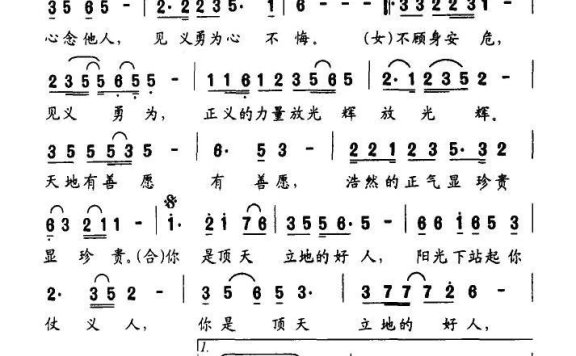 3 5 6 5 – | 2· 2 2 3 5· 1 | 6 – – – :‖: 3 3 2 2 3 1 – |
心念他人， 见 义勇为心 不 悔。 (女)不顾身安 危，
2 3 5 5 6 5 5 – | 1 1 6 1 2 3 5 6 5 | 2· 1 2 3 5 2 – |
见义 勇 为， 正义的力量放光 辉 放 光 辉。
3 5 5 5 3 5 – | 6· 5 3 – | 2 2 1 2 3 5· 3 2 |
天地有善 愿 有 善愿， 浩然的正气显 珍贵
6 3 2 1 1 – | 1· 2 1 7 6 | 3 5 5 6· 5 | 6 6 1 6 5 3 |
显 珍 贵。(合)你 是顶天 立地的好 人， 阳光下站起你
2· 3 5 2 – | 3 5 6 5 3· | 3 7 7 7 2 6 – |
仗 义 人， 你是 顶天 立地的 好 人，
1.